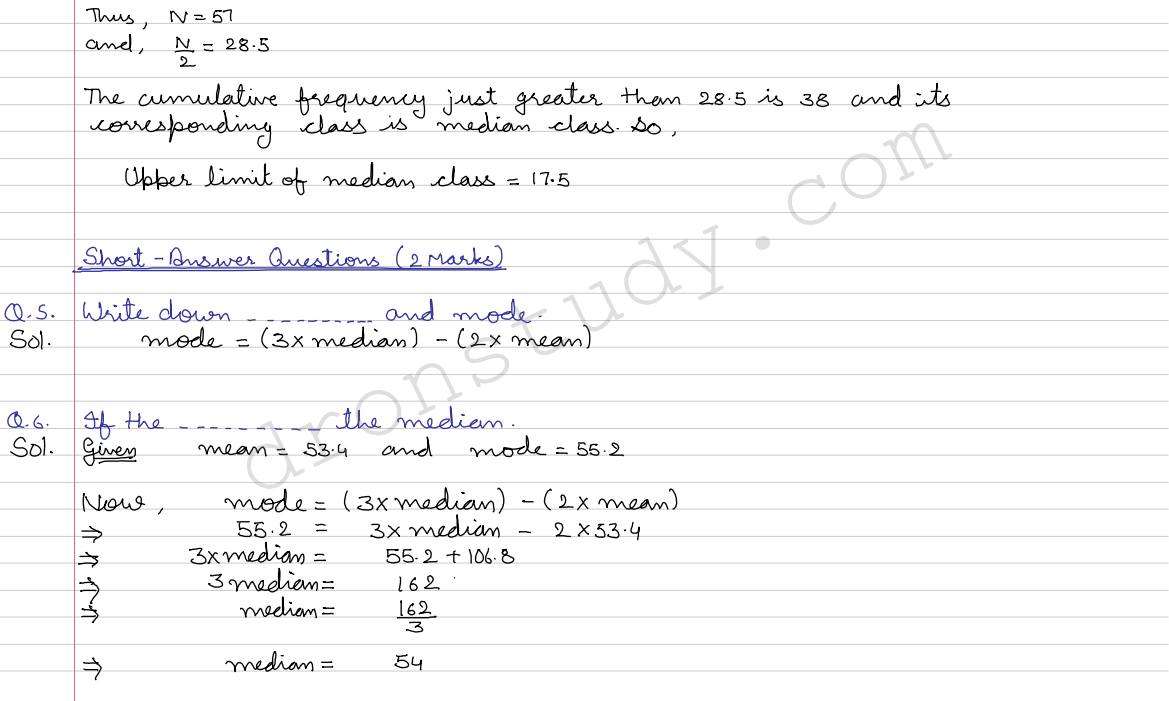 Thus, N = 57
and, N/2 = 28.5
The cumulative frequency just greater than 28.5 is 38 and its
corresponding class is median class. So,
Upper limit of median class = 17.5
Short-Answer Questions (2 Marks)
Q.5. Write down ---------- and mode.
Sol. mode = (3 x median) - (2 x mean)
Q.6. If the ---------- the median.
Sol. Given mean = 53.4 and mode = 55.2
Now, mode = (3 x median) - (2 x mean)
⇒ 55.2 = 3 x median - 2 x 53.4
⇒ 3 x median = 55.2 + 106.8
⇒ 3 median = 162
⇒ median = 162/3
⇒ median = 54
dronstudy.com